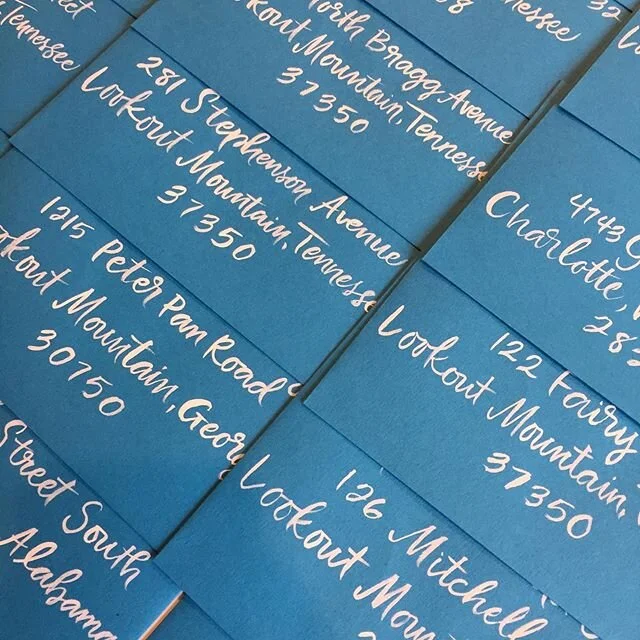 Tennessee
Tennessee
32
North Bragg Avenue
Lookout Mountain, Tennesse
37350
281 Stephenson Avenue
Lookout Mountain, Tennesse
37350
4743
Charlotte,
282
1215 Peter Pan Road
Lookout Mountain, Georg
30750
122 Fairy
Lookout Mountain,
37350
Street South
Alabama
126 Mitchell
Lookout Mou